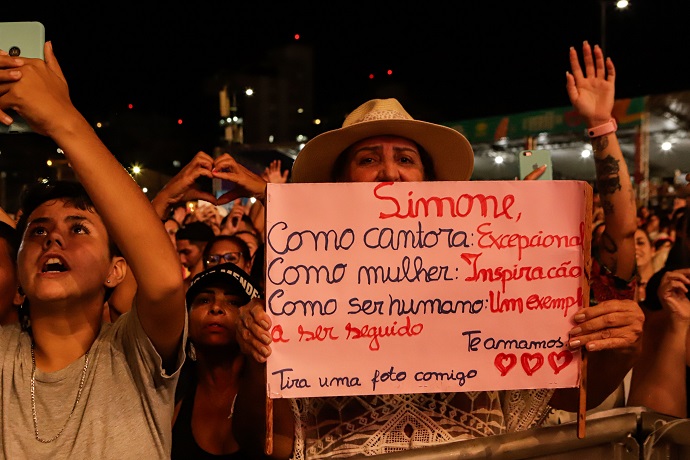 Simone,
Como cantora: Excepcional
Como mulher: Inspiração
Como ser humano: Um exempl
a ser seguido
Te amamos!
Tira uma foto comigo